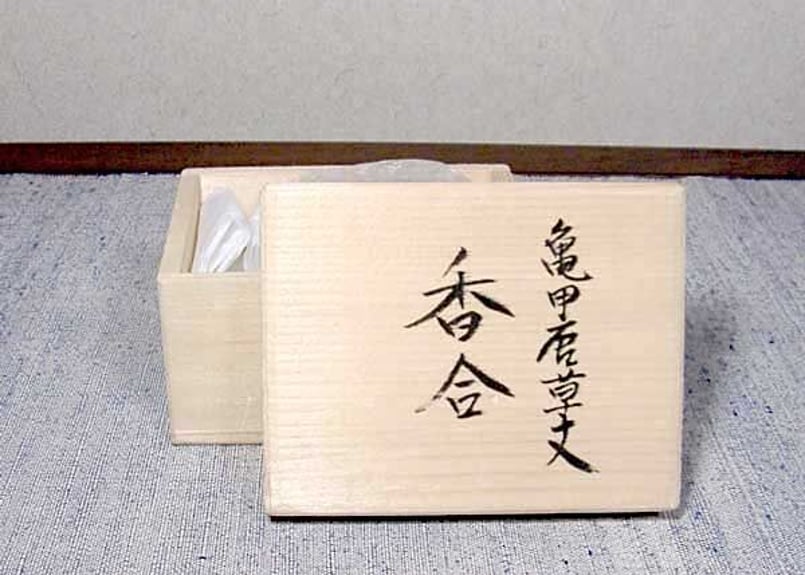 亀甲唐草文
香合